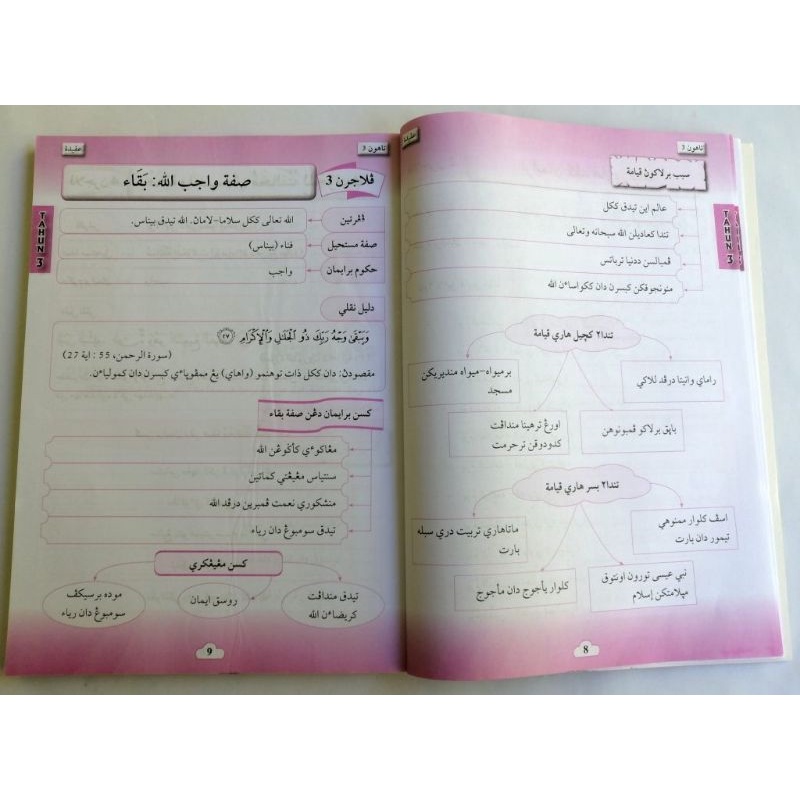 عقيدة
تاهون 3
سبب برلاكوڽ قيامة
TAHUN 3
عالم اين تيدق ككل
تندا كعاديلن الله سبحانه وتعالى
ڤمبالسن ددنيا ترباتس
منونجوقكن كبسرن دان ككواساءن الله
تندا٢ كچيل هاري قيامة
راماي وانيتا درڤد للاكي
برميواه-ميواه منديريكن
مسجد
باڽق برلاكو ڤمبونوهن
اورڠ ترهينا منداڤت
كدودوقن ترحرمت
تندا٢ بسر هاري قيامة
اسڤ كلوار ممنوهي
تيمور دان بارت
ماتاهاري تربيت دري سبله
بارت
نبي عيسى تورون اونتوق
مڽلامتكن إسلام
كلوار يأجوج دان مأجوج
8
عقيدة
تاهون 3
TAHUN 3
ڤلاجرن 3
صفة واجب الله: بَقَاء
ڤڠرتين
الله تعالى ككل سلاما-لاماڽ. الله تيدق بيناس.
صفة مستحيل
فناء (بيناس)
حكوم برايمان
واجب
دليل نقلي
وَيَبْقَىٰ وَجْهُ رَبِّكَ ذُو الْجَلَٰلِ وَالْإِكْرَامِ ﴿٢٧﴾
(سورة الرحمن، 55 : اية 27)
مقصودڽ: دان ككل ذات توهنمو (واهاي) يڠ ممڤوڽاءي كبسرن دان كمولياءن.
كسن برايمان دڠن صفة بقاء
مڠاكوءي كأݢوڠن الله
سنتياس مڠيڠتي كماتين
منشكوري نعمت ڤمبرين درڤد الله
تيدق سومبوڠ دان رياء
كسن مڠيڠكري
تيدق منداڤت
كريضاءن الله
روسق ايمان
موده برسيكڤ
سومبوڠ دان رياء
9